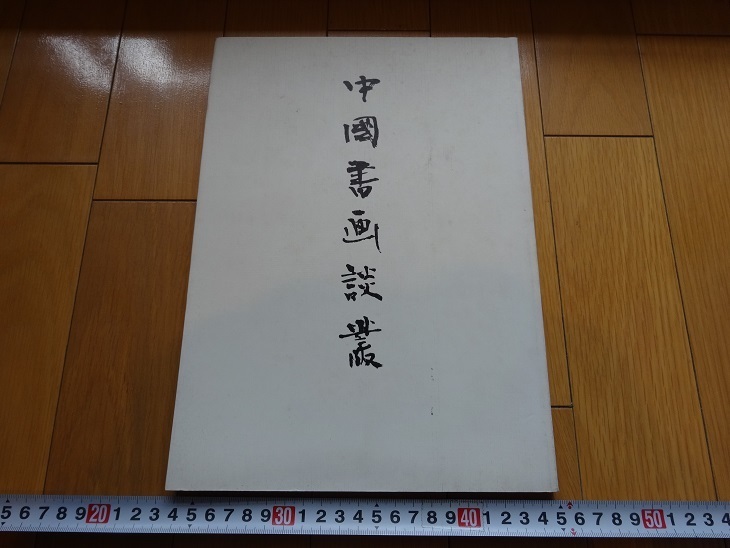 中國書画談叢
5 6 7 8 9 20 1 2 3 4 5 6 7 8 9 30 1 2 3 4 5 6 7 8 9 40 1 2 3 4 5 6 7 8 9 50 1 2 3 4